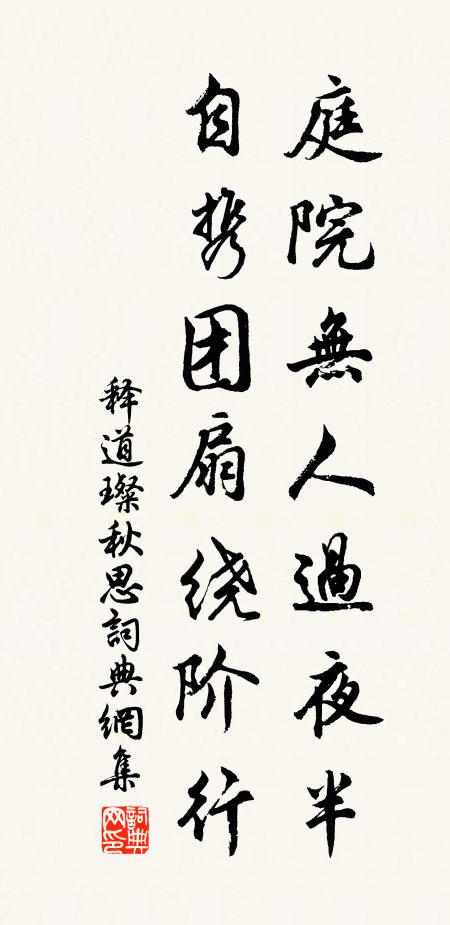 庭院無人過夜半
自携团扇绕阶行
释道璨秋思詞典網集
詞典网印